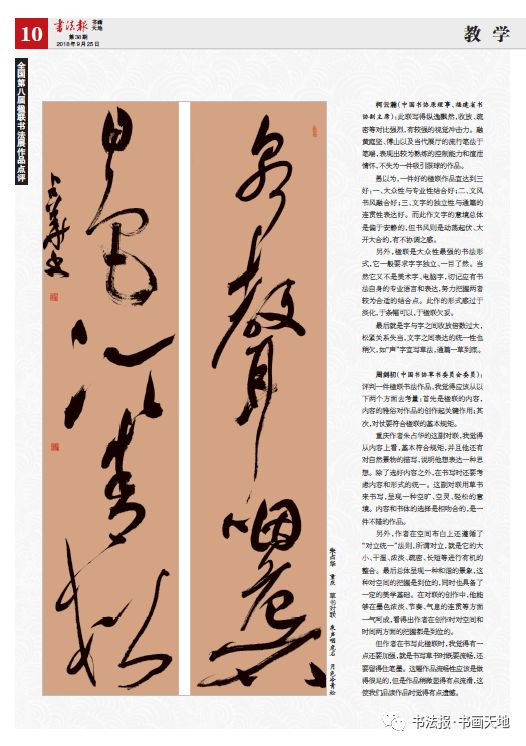 10
书法报 书画天地
第38期
2018年9月25日
教学
全国第八届楹联书法展作品点评
泉声咽危石
月色冷青松
朱占华 重庆 草书对联 泉声咽危石 月色冷青松
柯云瀚（中国书协原理事、福建省书
协副主席）：此联写得纵逸飘然，收放、疏
密等对比强烈，有较强的视觉冲击力。融
黄庭坚、傅山以及当代展厅的流行笔法于
笔端，表现出较为熟练的控制能力和宣泄
情怀，不失为一件吸引眼球的作品。
愚以为，一件好的楹联作品宜达到三
好：一、大众性与专业性结合好；二、文风
书风融合好；三、文字的独立性与通篇的
连贯性表达好。而此作文字的意境总体
是偏于安静的，但书风则是动荡起伏、大
开大合的，有不协调之感。
另外，楹联是大众性最强的书法形
式，它一般要求字字独立、一目了然。当
然它又不是美术字、电脑字，切记应有书
法自身的专业语言和表达，努力把握两者
较为合适的结合点。此作的形式感过于
淡化，于条幅可以，于楹联欠妥。
最后就是字与字之间收放倍数过大，
松紧关系失当，文字之间表达的统一性也
稍欠，如“声”字宜写草法，通篇一草到底。
周剑初（中国书协草书委员会委员）：
评判一件楹联书法作品，我觉得应该从以
下两个方面去考量：首先是楹联的内容，
内容的雅俗对作品的创作起关键作用；其
次，对仗要符合楹联的基本规矩。
重庆作者朱占华的这副对联，我觉得
从内容上看，基本符合规矩，并且他还有
对自然景物的描写，说明他想表达一种思
想。除了选好内容之外，在书写时还要考
虑内容和形式的统一。这副对联用草书
来书写，呈现一种空旷、空灵、轻松的意
境。内容和书体的选择是相吻合的，是一
件不错的作品。
另外，作者在空间布白上还遵循了
“对立统一”法则，所谓对立，就是它的大
小、干湿、浓淡、疏密、长短等进行有机的
整合。最后总体呈现一种和谐的景象，这
种对空间的把握是到位的，同时也具备了
一定的美学基础。在对联的创作中，他能
够在墨色浓淡、节奏、气息的连贯等方面
一气呵成，看得出作者在创作时对空间和
时间两方面的把握都是到位的。
但作者在书写此楹联时，我觉得有一
点还要加强，就是书写草书时既要流畅，还
要留得住笔墨。这幅作品流畅性应该是做
得很足的，但是作品稍微显得有点流滑，这
使我们品读作品时觉得有点遗憾。
书法报·书画天地